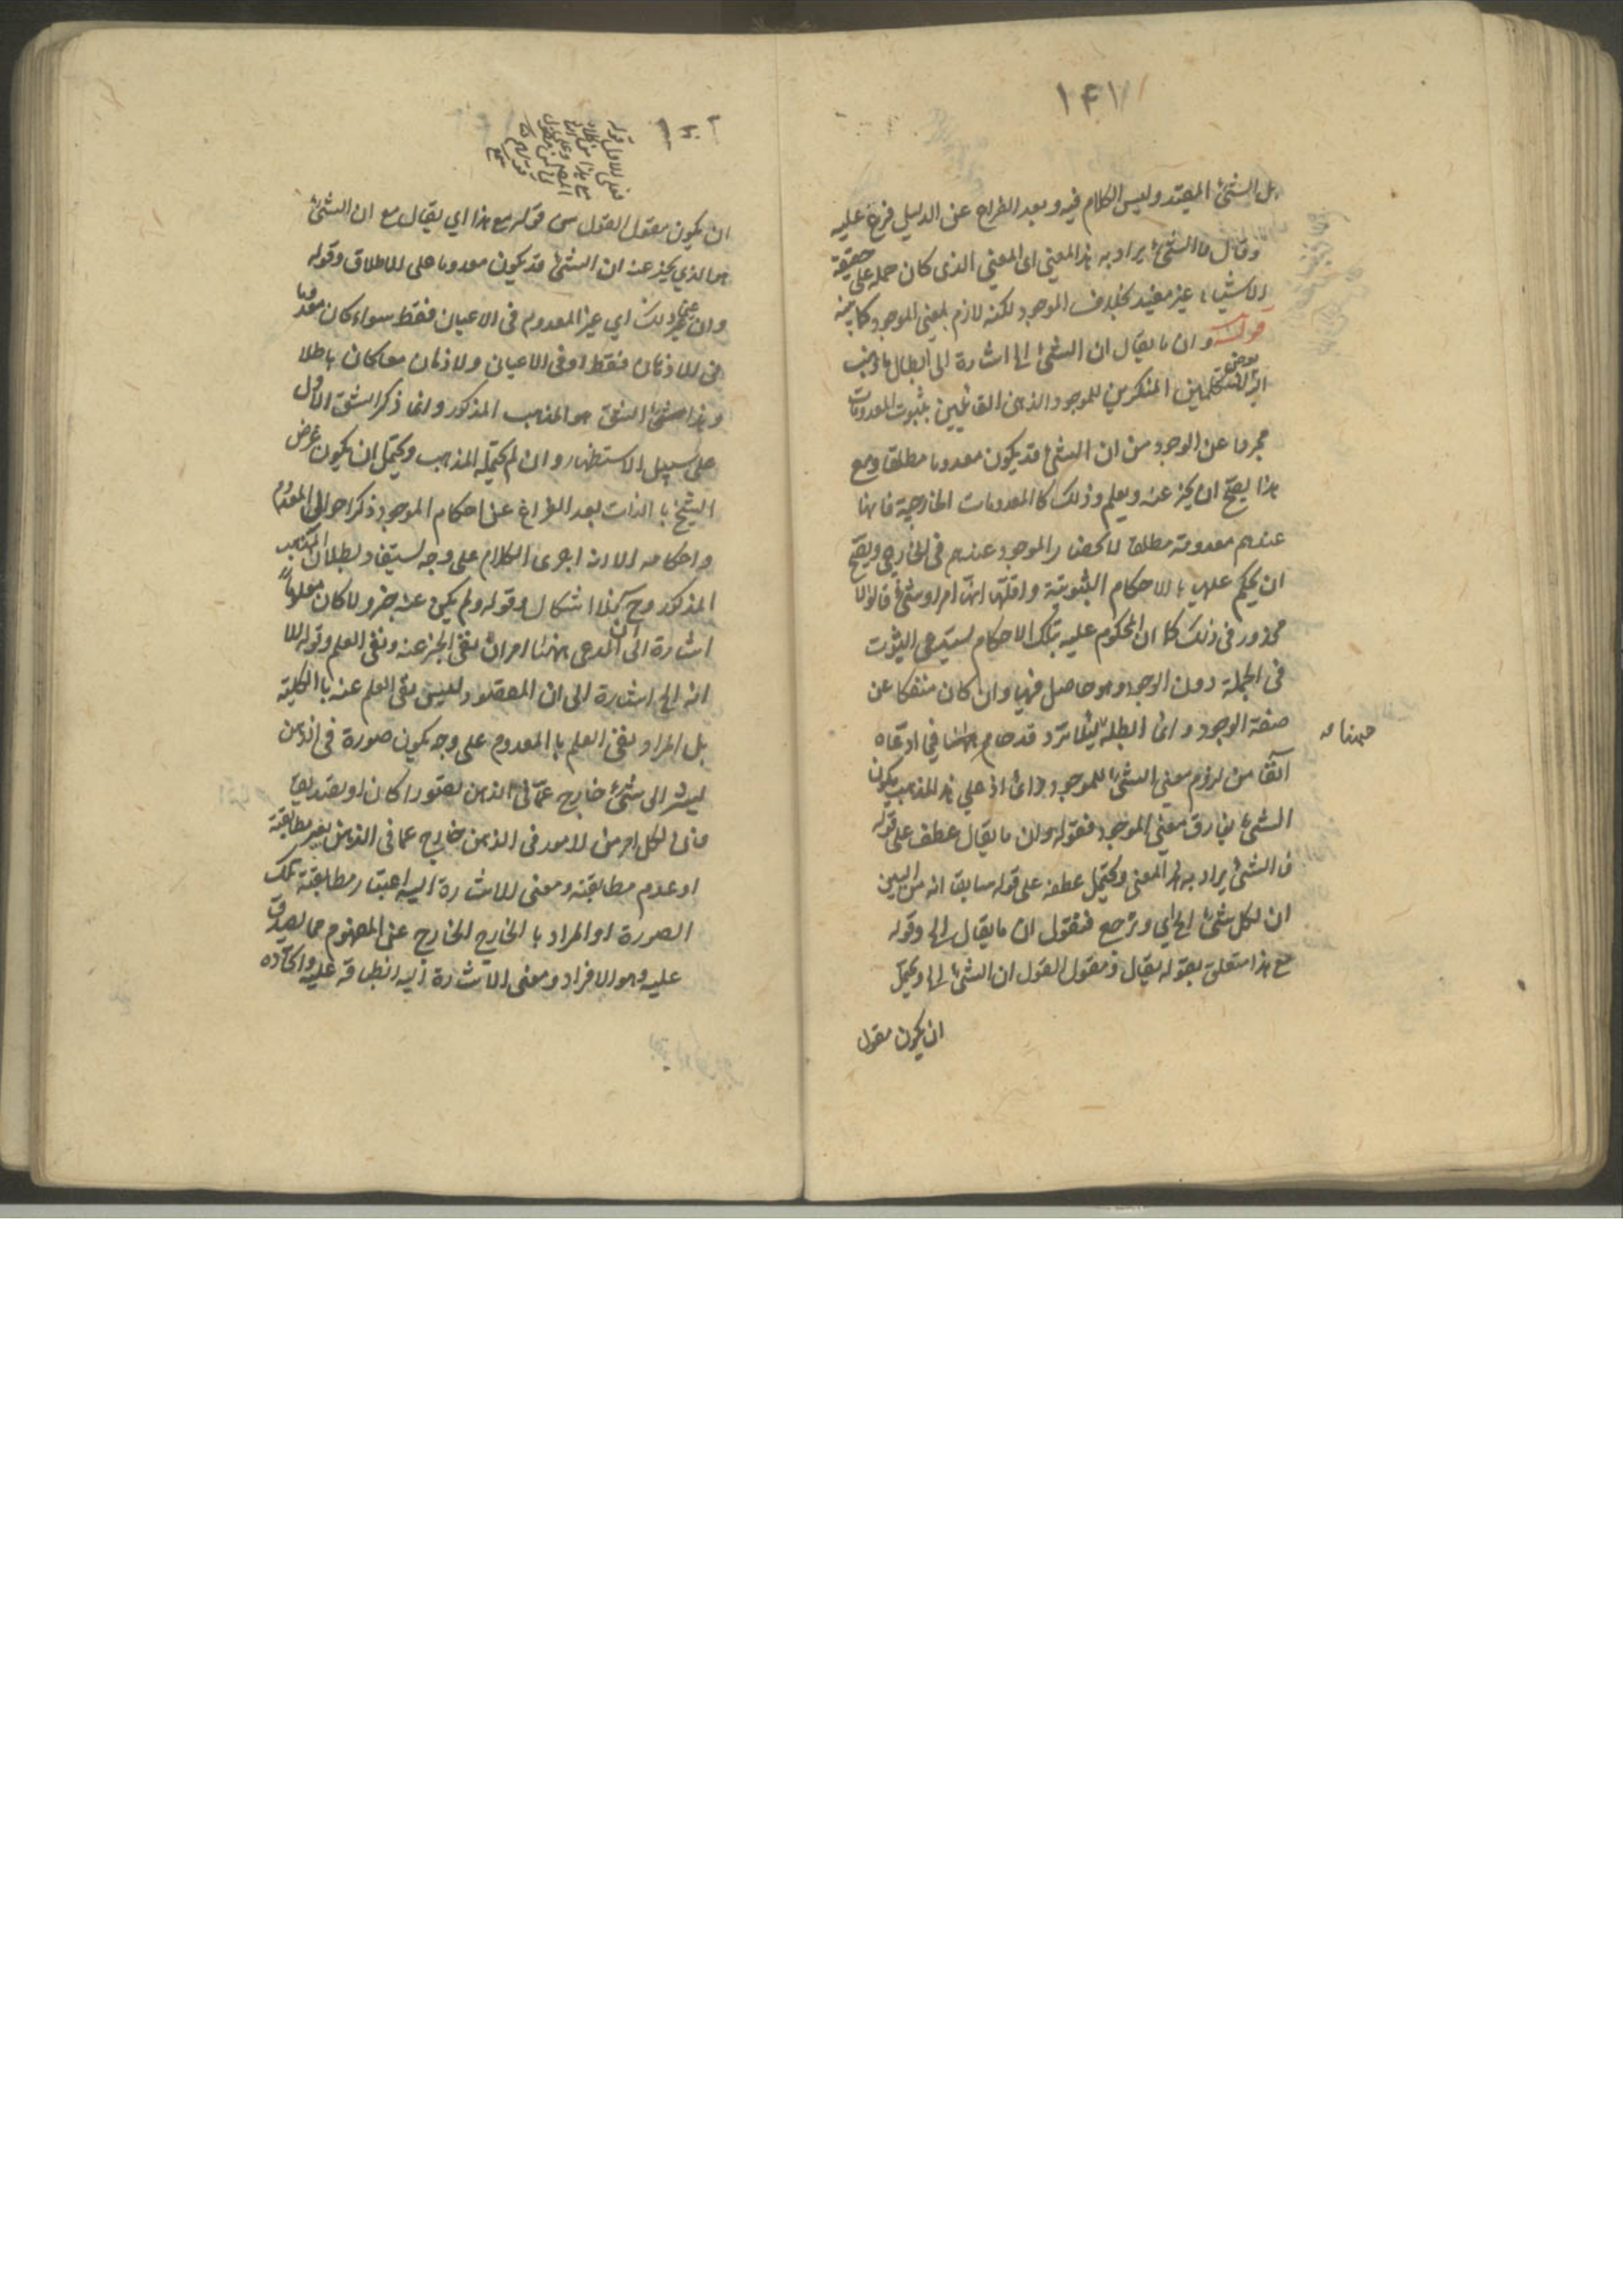 ۱۴۱
بل الشئ المقيد وليس الكلام فيه وبعد الفراغ عن الدليل فرع عليه
وقال فالشئ يراد به هذا المعنى اى المعنى الذى كان حمله على حقيقة
الاشياء غير مفيد بخلاف الموجود لكنه لازم لمعنى الموجود كما بينه
قوله وان ما يقال ان الشئ الخ اشارة الى ابطال ما ذهب
اليه بعض المتكلمين المنكرين للموجود الذهنى القائلين بثبوت المعدومات
مجردا عن الوجود من ان الشئ قد يكون معدوما مطلقا ومع
هذا يصح ان يخبر عنه ويعلم وذلك كالمعدومات الخارجية فانها
عندهم معدومة مطلقا لانحصار الموجود عندهم فى الخارجى ويصح
ان يحكم عليها بالاحكام الثبوتية واقلها انها امر او شئ قالوا لا
محذور فى ذلك كما ان المحكوم عليه بتلك الاحكام يستدعى الثبوت
فى الجملة دون الوجود وهو حاصل فيها وان كان منفكا عن
صفة الوجود وانما ابطله لئلا يرد قدحا فيما ادعاه
ههنا
آنفا من لزوم معنى الشئ للموجود وانما اذ على هذا المذهب يكون
الشئ يفارق معنى الموجود فقوله وان ما يقال عطف على قوله
فالشئ يراد به هذا المعنى ويحتمل عطفه على قوله سابقا انه من البين
ان لكل شئ الخ اي ونرجع فنقول ان ما يقال الخ وقوله
مع هذا متعلق بقوله يقال ومقول القول ان الشئ الخ ويحتمل
ان يكون مقول
ان يكون مقول القول هى قوله مع هذا اي يقال مع ان الشئ
هو الذي يخبر عنه ان الشئ قد يكون معدوما على الاطلاق وقوله
وان عنى غير ذلك اي غير المعدوم فى الاعيان فقط سواء كان معدوما
فى الاذهان فقط او فى الاعيان والاذهان معا كان باطلا
وهذا الشق هو المذهب المذكور وانما ذكر الشق الاول
على سبيل الاستظهار وان لم يحتمله المذهب ويحتمل ان يكون غرض
الشيخ بالذات بعد الفراغ عن احكام الموجود ذكر احوال المعدوم
واحكامه الا انه اجرى الكلام على وجه يستفاد بطلان المذهب
المذكور وح فلا اشكال وقوله ولم يكن عنه خبر ولا كان معلوما
اشارة الى ان المدعى ههنا امران نفى الخبر عنه ونفى العلم وقوله الا
انه الخ اشارة الى ان المقصود ليس نفى العلم عنه بالكلية
بل المراد نفى العلم بالمعدوم على وجه يكون صورة فى الذهن
ليشر الى شئ خارج عما فى الذهن تصورا كان او تصديقا
فان لكل امر من الامور فى الذهن خارج عما فى الذهن يعتبر مطابقته
او عدم مطابقته ومعنى الاشارة اليه اعتبار مطابقة تلك
الصورة او المراد بالخارج الخارج عن المفهوم مما يصدق
عليه وهو الافراد ومعنى الاشارة اليه انطباقه عليه واتحاده